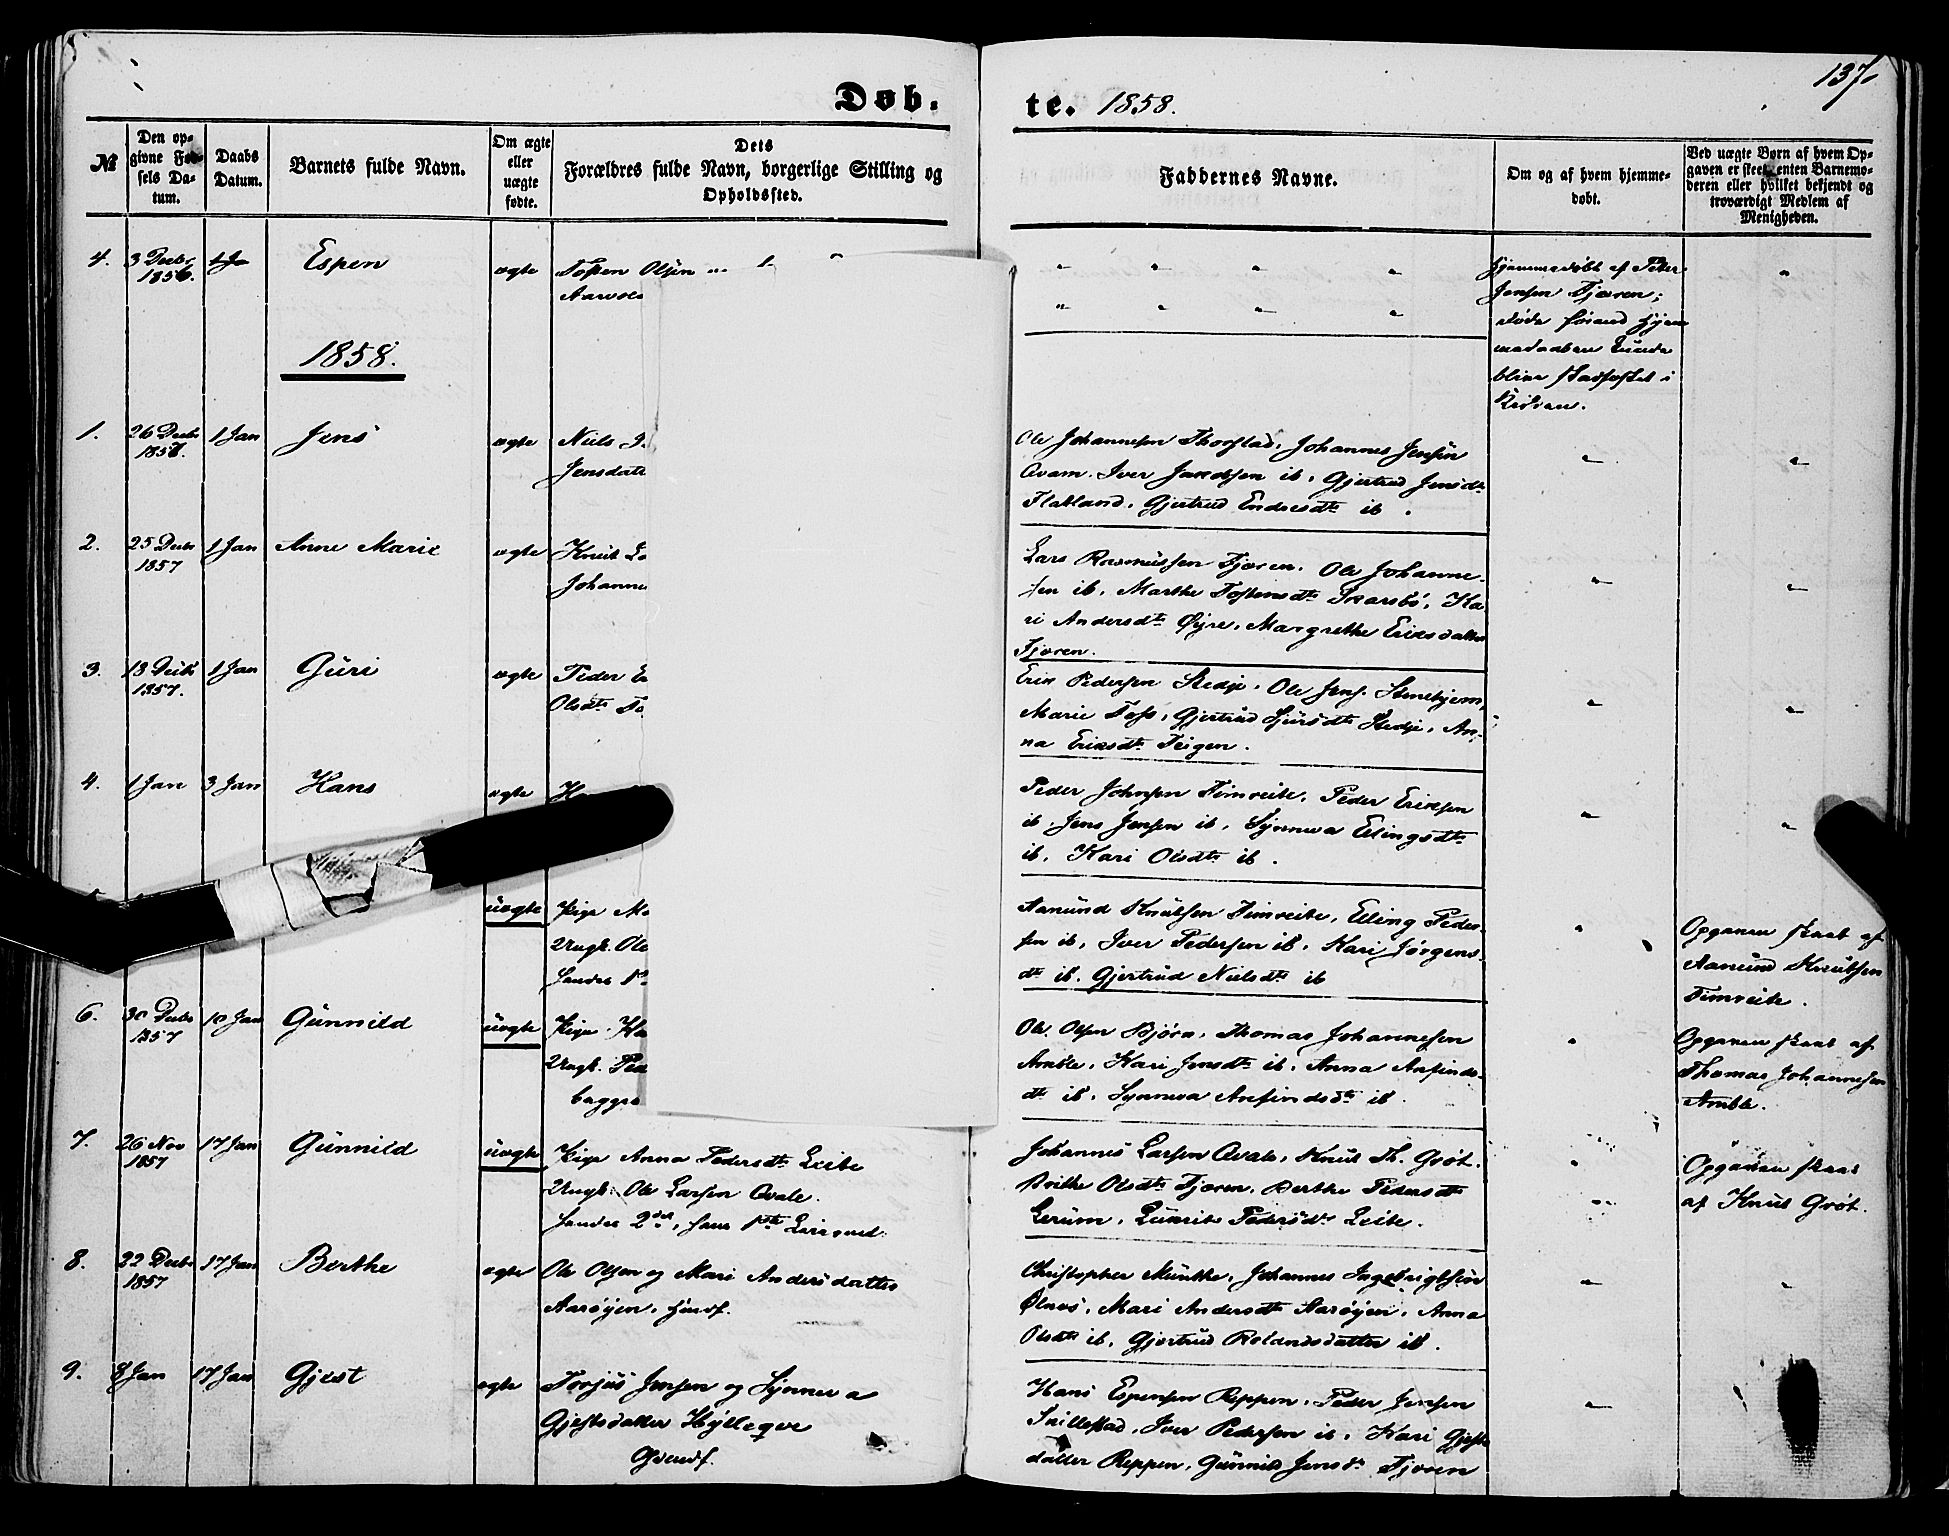 137.
Døb.
te. 1858.
№
Den op-
givne Fød-
sels Da-
tum.
Daabs
Datum.
Barnets fulde Navn.
Om ægte
eller
uægte
fødte.
Dets
Forældres fulde Navn, borgerlige Stilling og
Opholdssted.
Faddernes Navne.
Om og af hvem hjemme-
døbt.
Ved uægte Børn af hvem Op-
gaven er skeet, enten Barnemo-
deren eller hvilket bekjendt og
troværdigt Medlem af
Menigheden.
4. 3 Decbr Espen ægte Tosten Olsen
hjemmedøbt af Peder
Jensen Fjæren;
døde førend Hjem-
medaaben kunde
blive stadfæstet i
Kirken.
1858.
1. 26 Decbr 1 Jan Jens ægte Niels
1857.
Jensdatt
Ole Johannesen Thorstad, Johannes Jensen
Qvam. Iver Jacobsen ib, Gjertrud Jensdtr
Flatland, Gjertrud Endresdtr ib.
2. 25 Decbr 1 Jan Anne Marie ægte Knut
1857
Johanne
Lars Rasmussen Fjæren, Ole Johanne-
sen ib, Marthe Tostensdtr Skarsbö, Ka-
ri Andersdtr Øyre, Margrethe Eriksdatter
Fjæren.
3. 13 Decbr 1 Jan Guri ægte Peder
1857.
Olsdtr
Erik Pedersen Stedje, Ole Jens. Stenehjem,
Marie Foss, Gjertrud Sjursdtr Stedje, An-
na Eriksdtr Teigen.
4. 1 Jan 3 Jan Hans ægte
Peder Johnsen Fimreite, Peder Eriksen
ib, Jens Jensen ib, Synneva Ellingsdtr
ib, Kari Olsdtr ib.
uægte Pige
Ungk. Ole
Aamund Knutsen Fimreite, Elling Peder-
sen ib, Iver Pedersen ib, Kari Jørgens-
dtr ib. Gjertrud Nielsdtr ib
Opgaven skeet af
Aamund Knutsen
Fimreite.
6. 30 Decbr 10 Jan Gunnild uægte Pige
1857
Ungk.
Ole Olsen Björn, Thomas Johannesen
Amble, Kari Jensdtr ib, Anna Anfinds-
dtr ib, Synneva Anfindsdtr ib.
Opgaven skeet af
Thomas Johannesen
Amble.
7. 26 Nov 17 Jan Gunnild uægte Pige Anna Pedersdtr Leite
1857
Ungk. Ole Larsen Qvale.
hendes 2det, hans 1ste Leiermaal.
Johannes Larsen Qvale, Knut Th. Grøt.
Brithe Olsdtr Fjæren, Berthe Pedersdtr
Lerum, Pedersdtr Leite.
Opgaven skeet
af Knut Grøt.
8. 22 Decbr 17 Jan Berthe ægte Ole Olsen og Mari Andersdatter
1857
Aarøyen, Husf.
Christopher Munthe, Johannes Ingebrigtsen
Ølnæs, Mari Andersdtr Aarøyen, Anna
Olsdtr ib, Gjertrud Rolandsdatter ib.
9. 8 Jan 17 Jan Gjest ægte Torjus Jensen og Synneva
Gjestsdatter Hylleqve
Hans Espensen Reppen, Peder Jensen
Skillestad, Iver Pedersen ib, Kari Gjests-
datter Reppen, Gunnild Jensdtr Fjæren